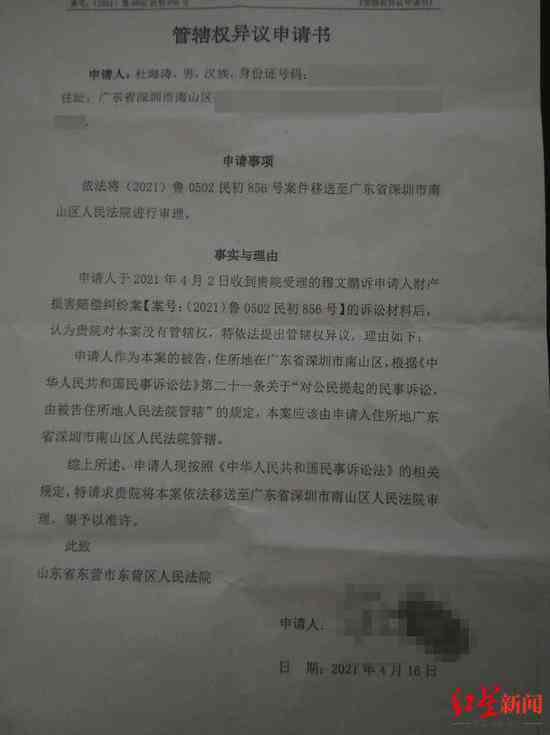 管辖权异议申请书
申请人：杜海涛，男，汉族，身份证号码：
住址：广东省深圳市南山区
申请事项
依法将（2021）鲁 0502 民初 856 号案件移送至广东省深圳市南
山区人民法院进行审理。
事实与理由
申请人于 2021 年 4 月 2 日收到贵院受理的穆文鹏诉申请人财产
损害赔偿纠纷案【案号：（2021）鲁 0502 民初 856 号】的诉讼材料后，
认为贵院对本案没有管辖权，特依法提出管辖权异议，理由如下：
申请人作为本案的被告，住所地在广东省深圳市南山区，根据《中
华人民共和国民事诉讼法》第二十一条关于“对公民提起的民事诉讼，
由被告住所地人民法院管辖”的规定，本案应该由申请人住所地广东
省深圳市南山区人民法院管辖。
综上所述，申请人现按照《中华人民共和国民事诉讼法》的相关
规定，特请求贵院将本案依法移送至广东省深圳市南山区人民法院审
理，望予以准许。
此致
山东省东营市东营区人民法院
申请人：
日 期：2021 年 4 月 16 日
红星新闻